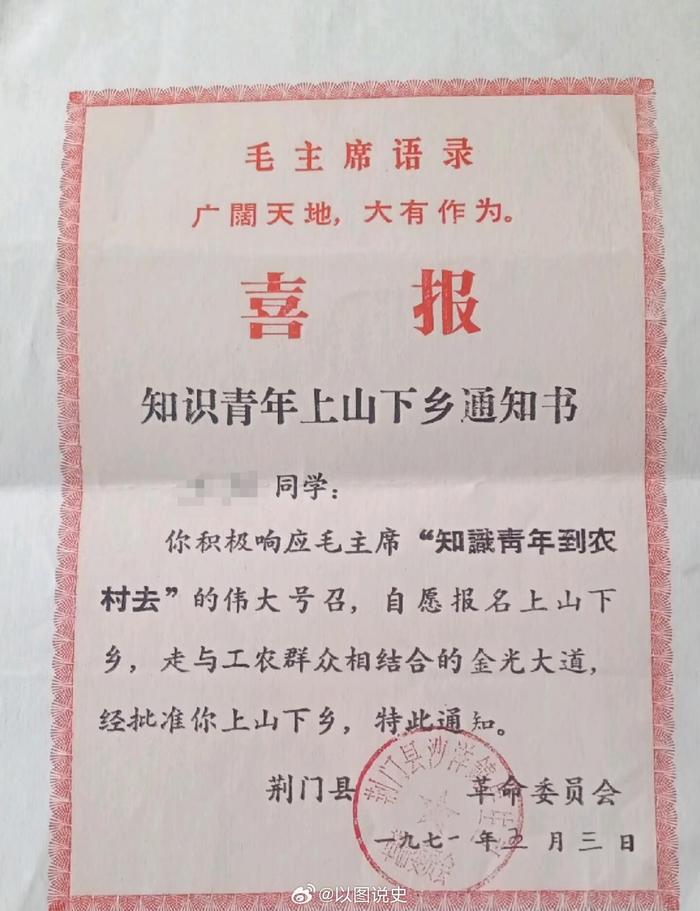 毛主席语录
广闊天地，大有作为。
喜报
知识青年上山下乡通知书
同学：
你积极响应毛主席“知識青年到农
村去”的伟大号召，自愿报名上山下
乡，走与工农群众相结合的金光大道，
经批准你上山下乡，特此通知。
荆门县 革命委员会
荆门县沙洋鎮
革命委員会
一九七一年五月三日
@以图说史